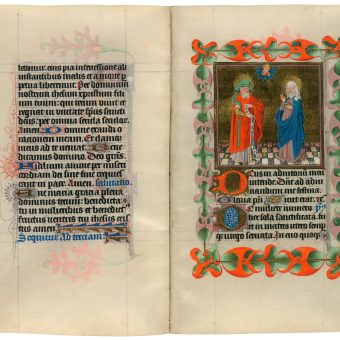 tetinur. eius pia intercessione ab
instantibus malis et a morte p
petua liberemur. Per dominum
nostrum ihesum xpistum filium
suum tuum: qui tecum vivit et
regnat in unitate spūs sancti
deus: per omnia secula seculor.
Amen. Domine exaudi o
rationem meam. Et clamor
meus ad te veniat. Benedi
camus domino. Deo gracias.
Fidelium anime per miseri
cordiam dei sine fine requies
cant in pace. Amen. salutatio.
Ave maria gracia plena
dominus tecum: benedicta
tu in mulieribus et benedict
fructus ventris tui ihesus cris
tus amen.
Sequitur Ad terciam.
Deus in adiutoriū meū
intende. Dñe ad adiu
vandum me festina.
Gloria p̄ri
mulieres
hec sola
ut in mater
virgo servata. In eno quoq